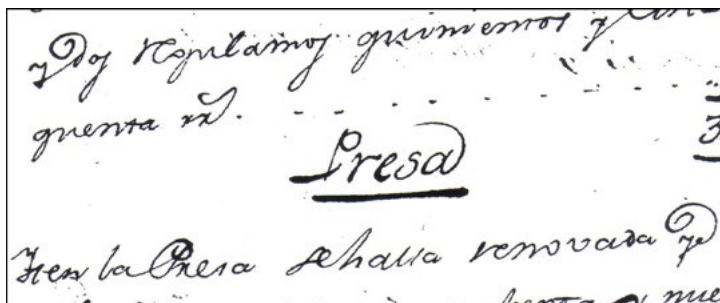 y dos regulamos quinientos y cin
quenta rr.^s
3
Presa
Iten la Presa se halla renovada y